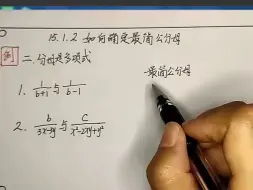 15.1.2 如何确定最简公分母
例 二.分母是多项式
最简公分母
1. 1/(b+1) 与 1/(b-1)
2. b/(3x-3y) 与 c/(x²-2xy+y²)